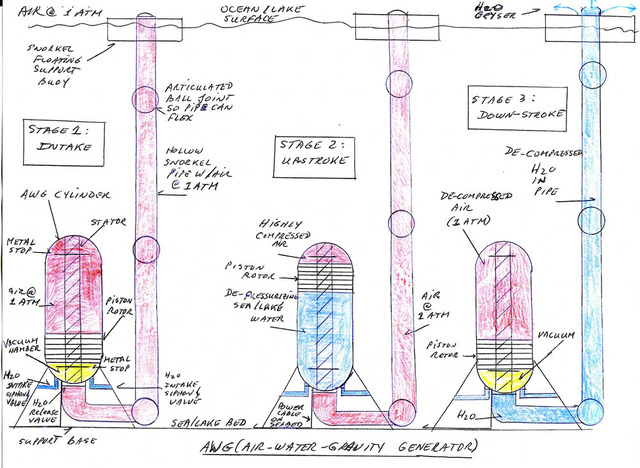 AIR @ 1 ATM
OCEAN/LAKE
SURFACE
H2O
GEYSER
SNORKEL
FLOATING
SUPPORT
BUOY
ARTICULATED
BALL JOINT
SO PIPE CAN
FLEX
STAGE 1:
INTAKE
STAGE 2:
UPSTROKE
STAGE 3:
DOWN-STROKE
HOLLOW
SNORKEL
PIPE W/AIR
@ 1 ATM
DE-COMPRESSED
H2O
IN
PIPE
AWG CYLINDER
STATOR
METAL
STOP
AIR @
1 ATM
PISTON
ROTOR
VACUUM
HAMBER
METAL
STOP
H2O
INTAKE
SIPHON &
VALVE
H2O
RELEASE
VALVE
H2O
INTAKE
SIPHON &
VALVE
SUPPORT BASE
SEA/LAKE BED
HIGHLY
COMPRESSED
AIR
PISTON
ROTOR
DE-PRESSURIZING
SEA/LAKE
WATER
AIR
@
1 ATM
POWER
CABLE
ON
SEABED
DE-COMPRESSED
AIR
(1 ATM)
PISTON
ROTOR
VACUUM
H2O
AWG (AIR-WATER-GRAVITY GENERATOR)